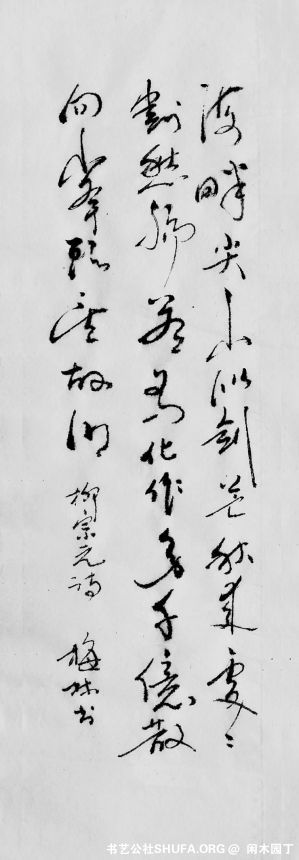 海畔尖山似剑芒秋来处〻
割愁肠若为化作身千億散
向峯头望故乡 柳宗元诗 梅林书
书艺公社SHUFA.ORG @ 闲木园丁